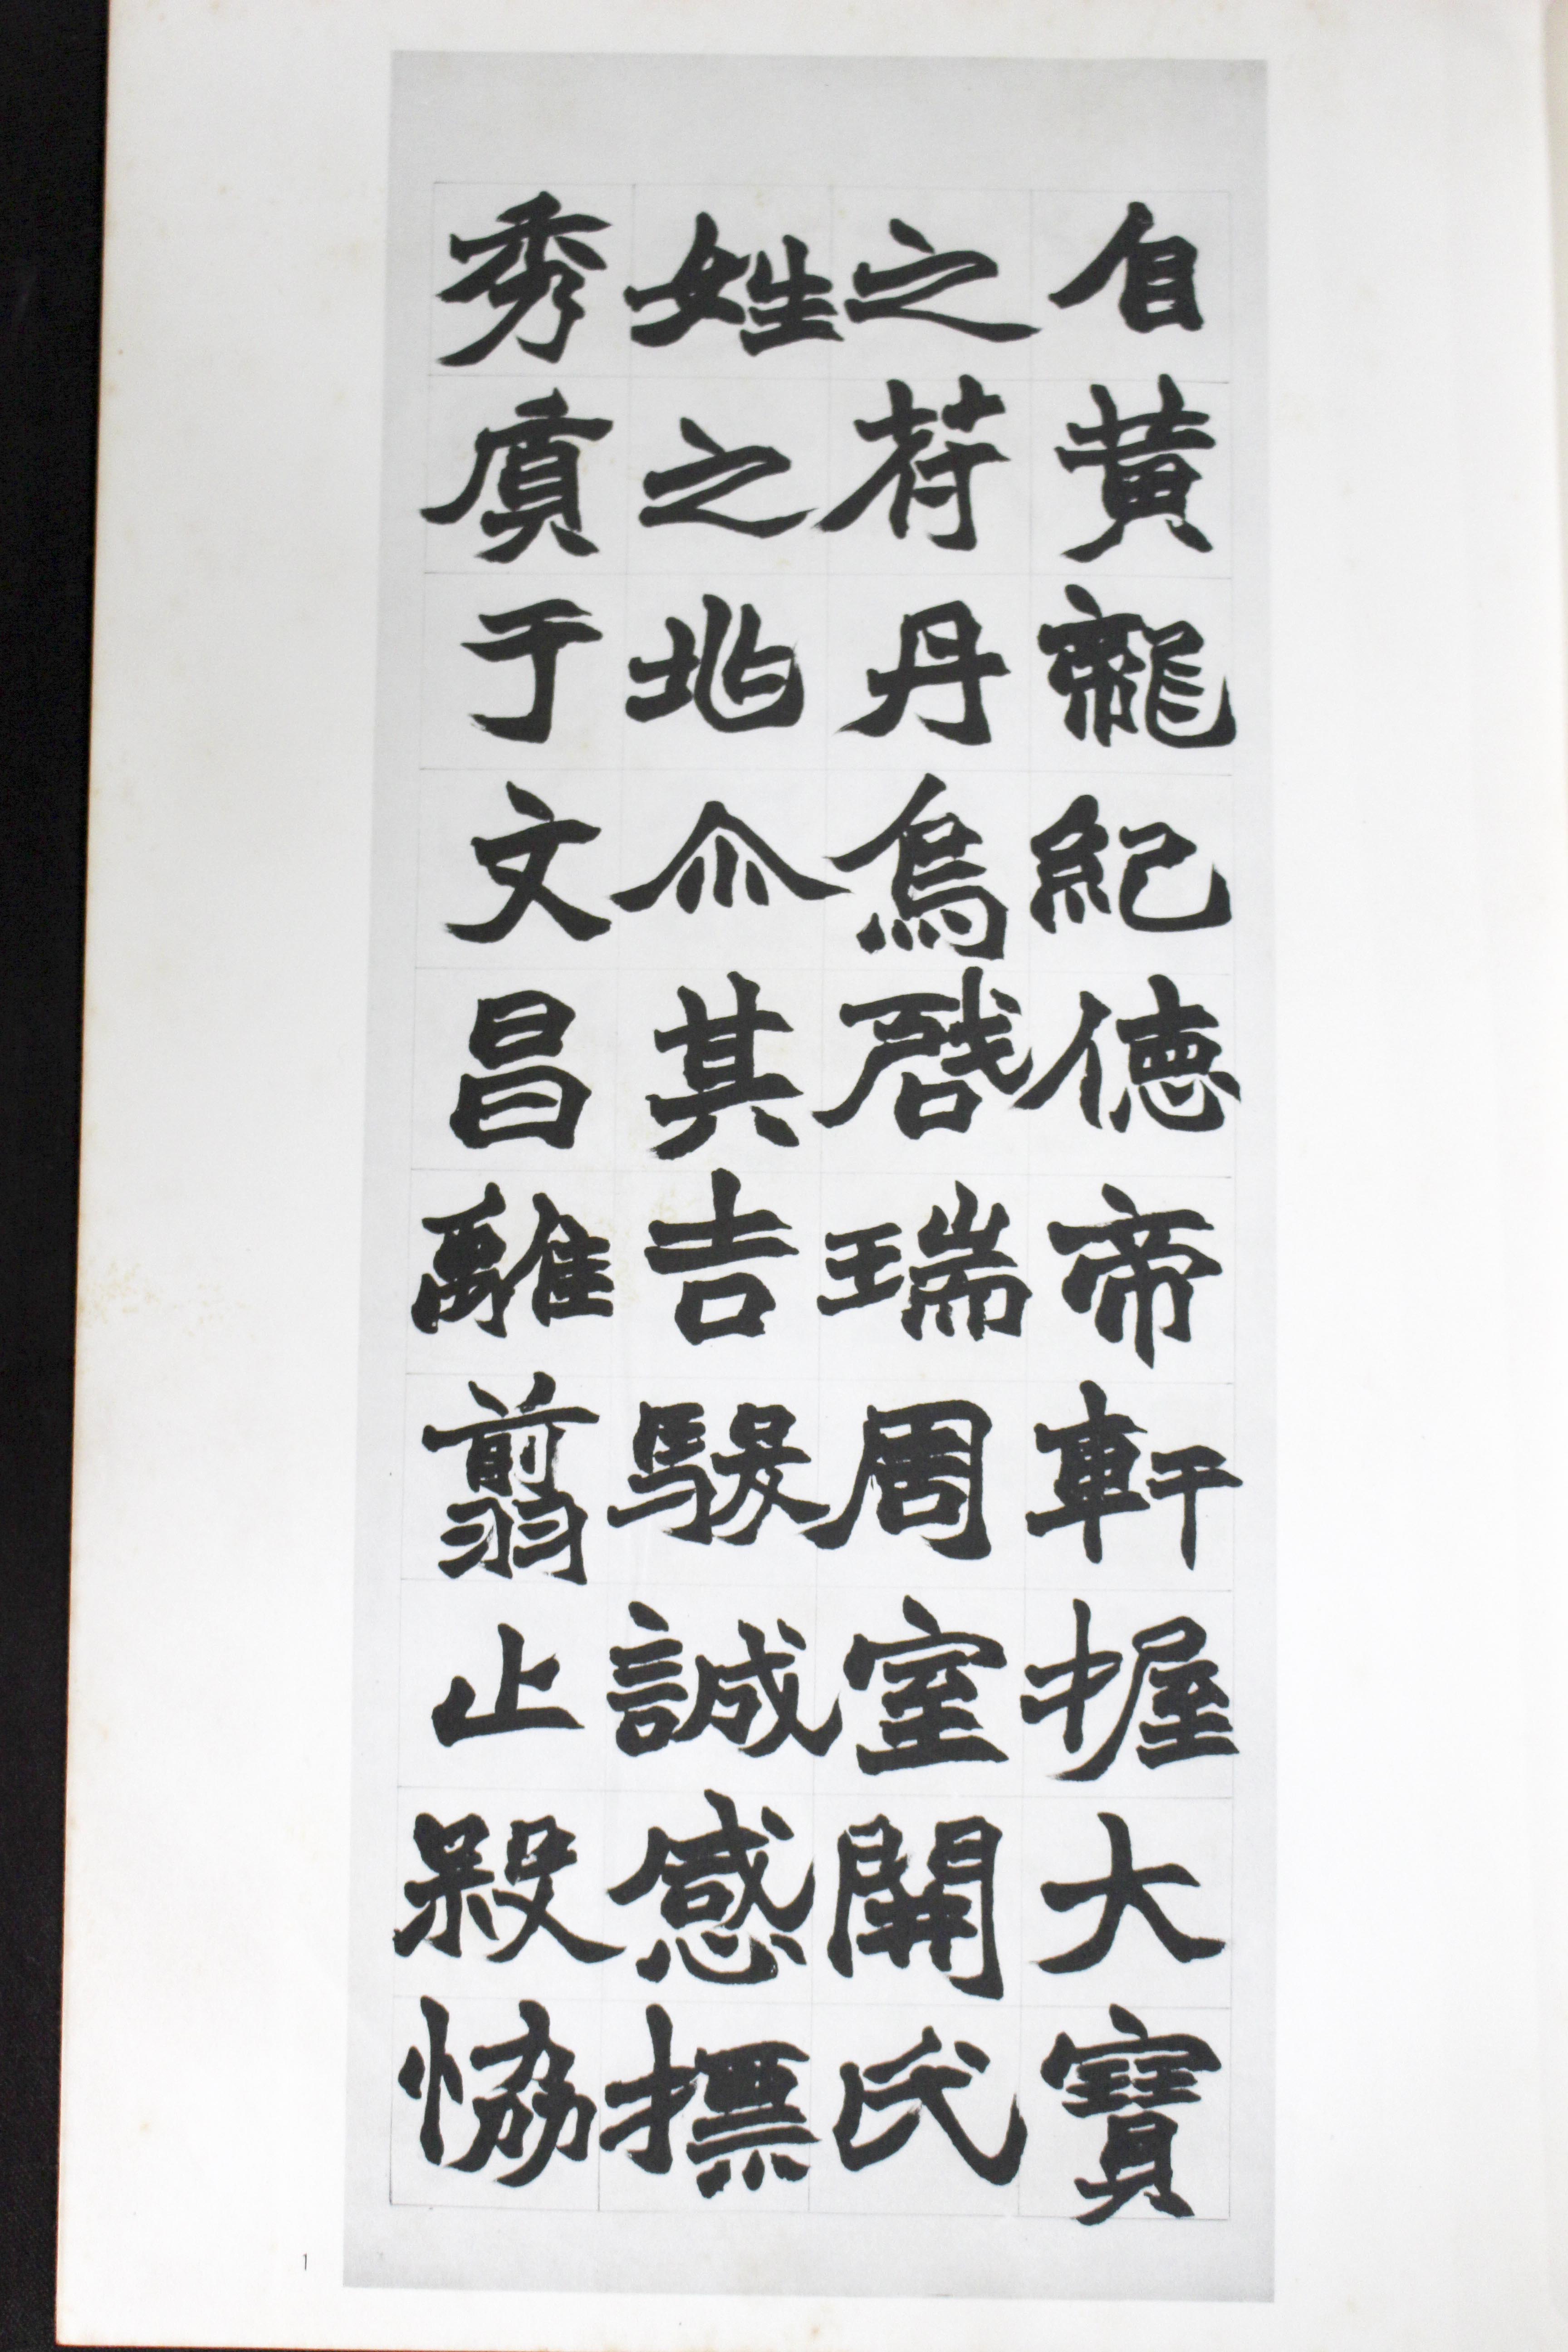 自黃龍紀德帝軒握大寶
之苻丹烏啓瑞周室開氏
姓之兆𠆤其吉駸誠感摽
秀虞于文昌離翦止殺恊
1